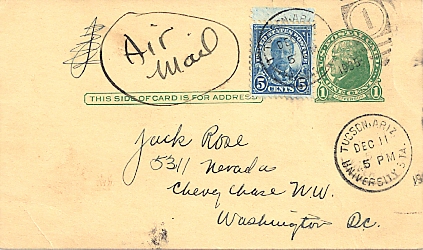 Air
Mail
UNITED STATES POSTAGE
5 CENTS 5
1 1
THIS SIDE OF CARD IS FOR ADDRESS
TUCSON, ARIZ.
DEC 11
5 PM
UNIVERSITY STA.
Jack Rose
5311 Nevada
Chevy Chase N.W.
Washington D.C.